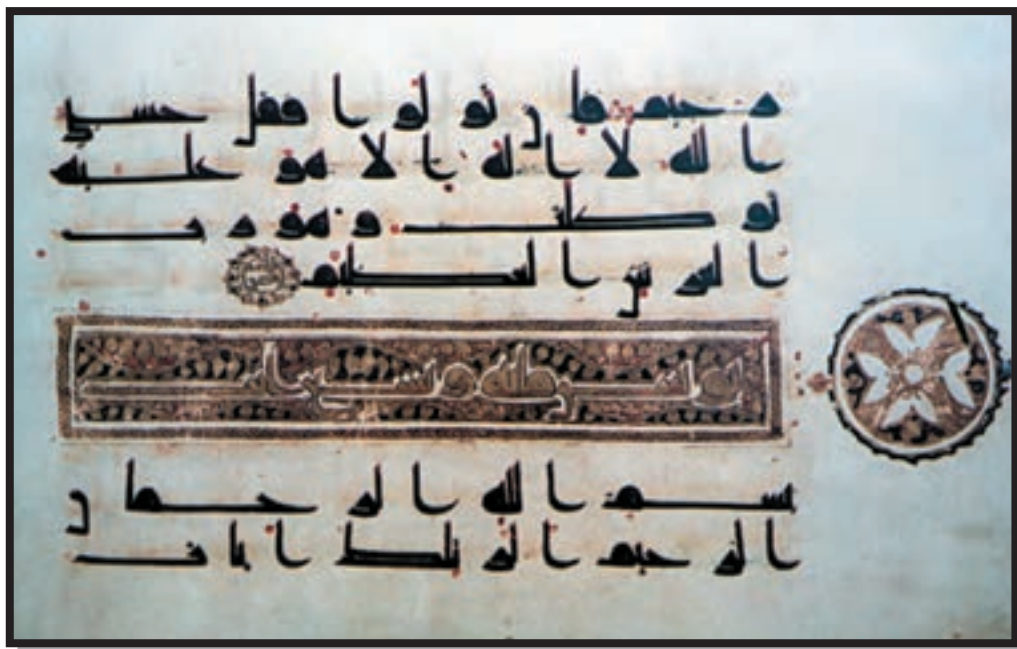 رحيم فان تولوا فقل حسبي
الله لا اله الا هو عليه
توكلت و هو رب
العرش العظيم
يونس مائة وتسع ايات
بسم الله الرحمن
الرحيم الر تلك ايات